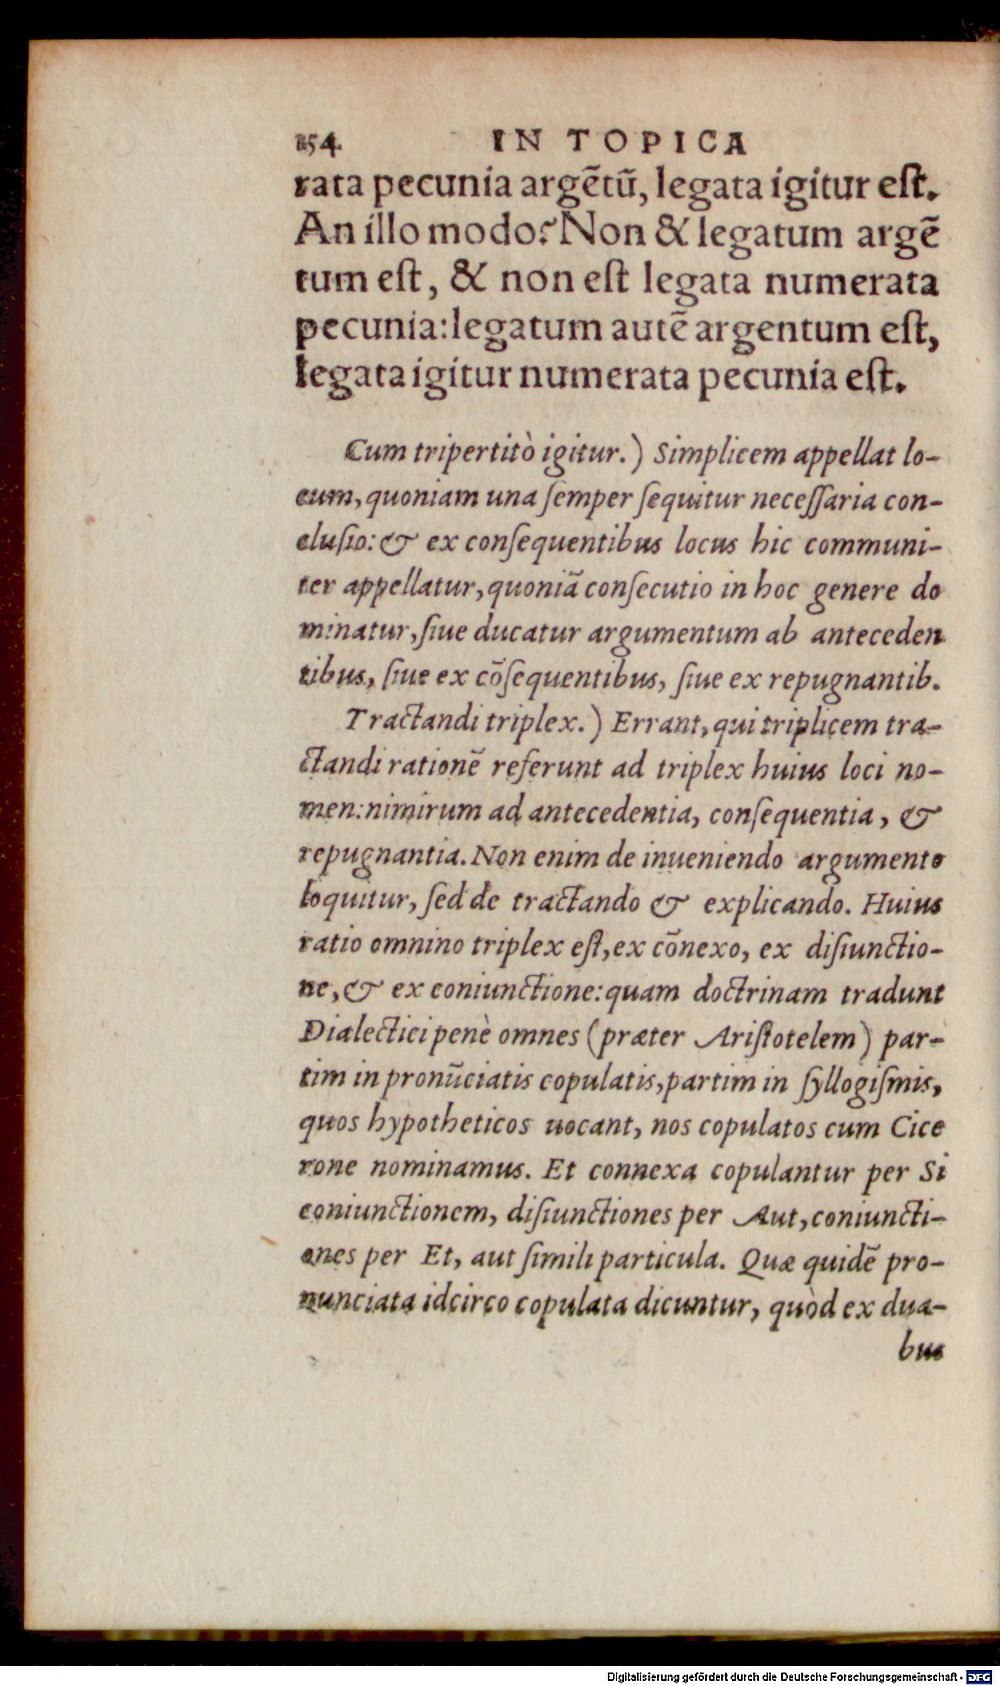 254 IN TOPICA
rata pecunia argẽtũ, legata igitur eſt.
An illo modo? Non & legatum argẽ
tum eſt, & non eſt legata numerata
pecunia: legatum autẽ argentum eſt,
legata igitur numerata pecunia eſt.
Cum tripertitò igitur.) Simplicem appellat lo-
cum, quoniam una ſemper ſequitur neceſſaria con-
cluſio: & ex conſequentibus locus hic communi-
ter appellatur, quoniã conſecutio in hoc genere do
minatur, ſiue ducatur argumentum ab anteceden
tibus, ſiue ex cõſequentibus, ſiue ex repugnantib.
Tractandi triplex.) Errant, qui triplicem tra-
ctandi rationẽ referunt ad triplex huius loci no-
men: nimirum ad antecedentia, conſequentia, &
repugnantia. Non enim de inueniendo argumento
loquitur, ſed de tractando & explicando. Huius
ratio omnino triplex eſt, ex cõnexo, ex diſiunctio-
ne, & ex coniunctione: quam doctrinam tradunt
Dialectici penè omnes (præter Ariſtotelem) par-
tim in pronũciatis copulatis, partim in ſyllogiſmis,
quos hypotheticos uocant, nos copulatos cum Cice
rone nominamus. Et connexa copulantur per Si
coniunctionem, diſiunctiones per Aut, coniuncti-
ones per Et, aut ſimili particula. Quæ quidẽ pro-
nunciata idcirco copulata dicuntur, quòd ex dua-
bus
Digitalisierung gefördert durch die Deutsche Forschungsgemeinschaft - DFG